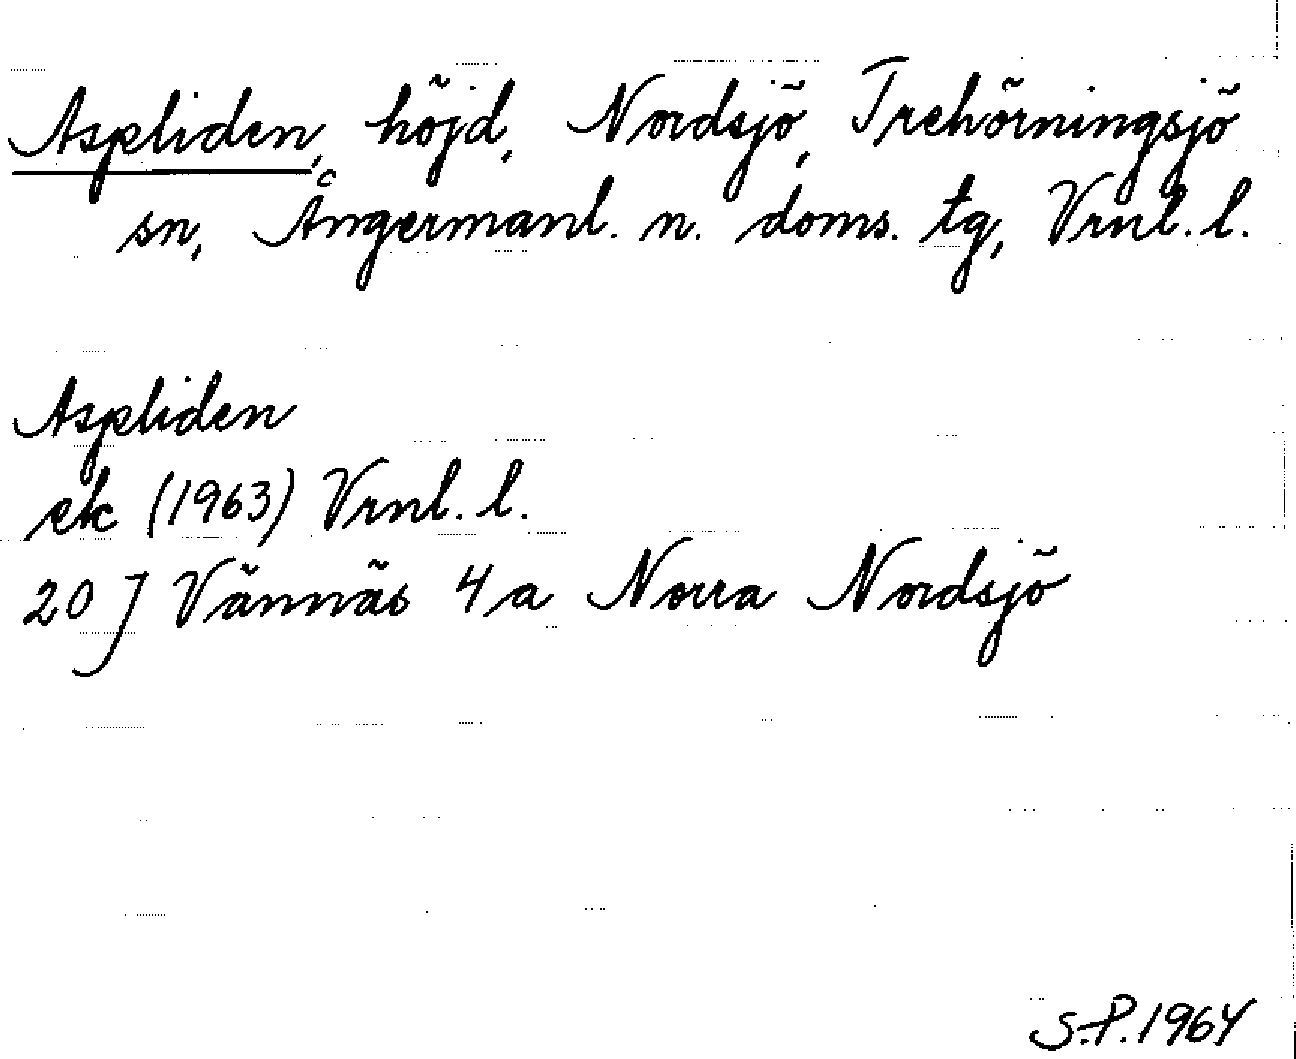 Aspliden, höjd, Nordsjö, Trehörningsjö
sn, Ångermanl. n. doms. tg, Vrnl. l.
Aspliden
ek (1963) Vrnl. l.
20 J Vännäs 4a Norra Nordsjö
S.P. 1964